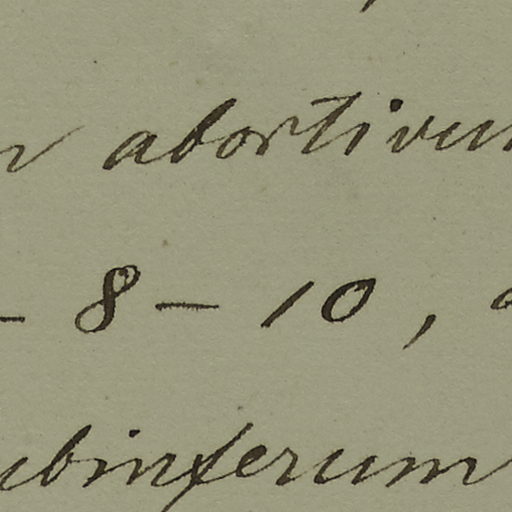 abortivu
- 8 - 10,
ubinferum